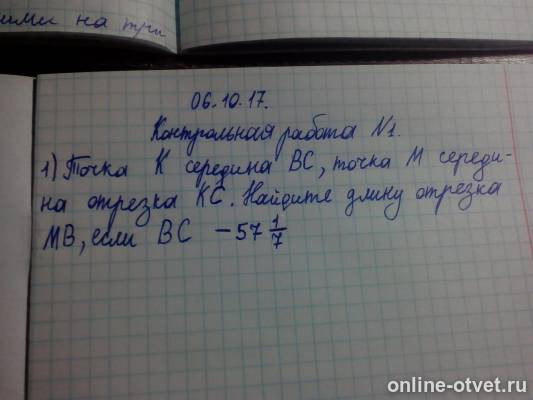 ими на три
06.10.17.
Контрольная работа N1.
1) Точка К середина ВС, точка М середи-
на отрезка КС. Найдите длину отрезка
МВ, если ВС – 57 1/7
online-otvet.ru